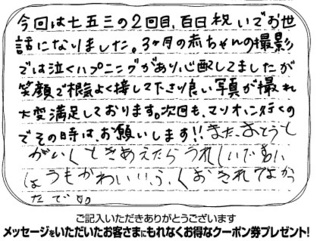 今回は七五三の2回目,百日祝いでお世
話になりました。3ヶ月の赤ちゃんの撮影
では泣くハプニングがあり心配してましたが
笑顔で根気よく接して下さり良い写真が撮れ
大変満足しております。次回も、マリオンに行くの
でその時は、お願いします!!またおとうと
がいくときあえたらうれしい
は かわい
たで
ご記入いただきありがとうございます
メッセージをいただいたお客さまにもれなくお得なクーポン券プレゼント!